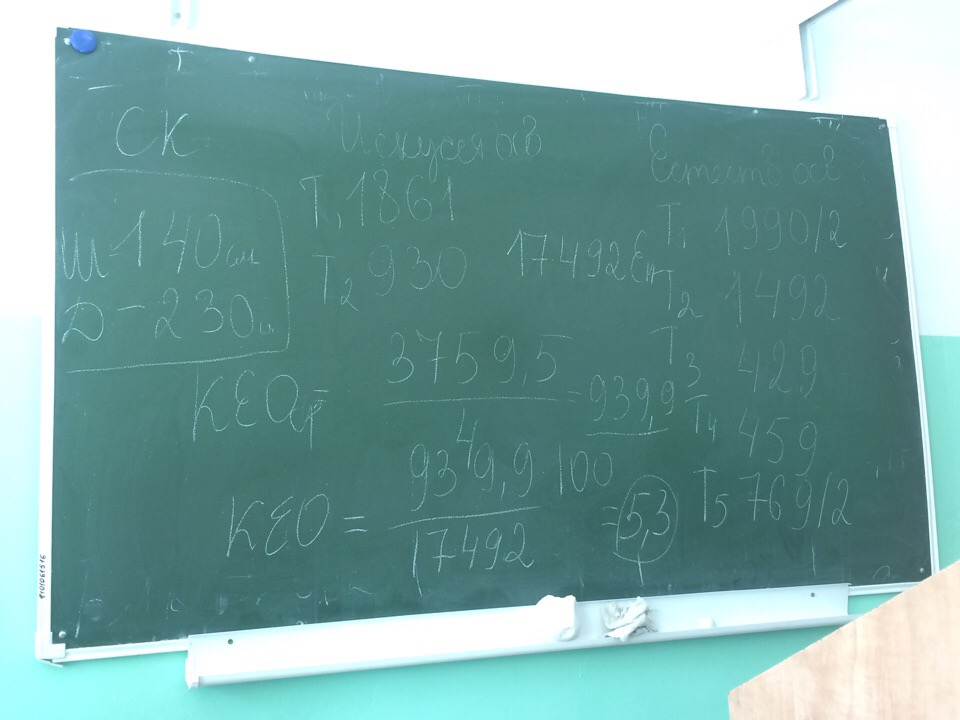 СК
Ш-140 см
Д-230 см
Искусст осв
Т1 1861
Т2 930
17492 Ен
Естеств осв
Т1 1990/2
Т2 1492
Т3 429
Т4 459
Т5 769/2
КЕОср= 3759,5 / 4 = 939,9
КЕО = 939,9 100 / 17492 = 5,3